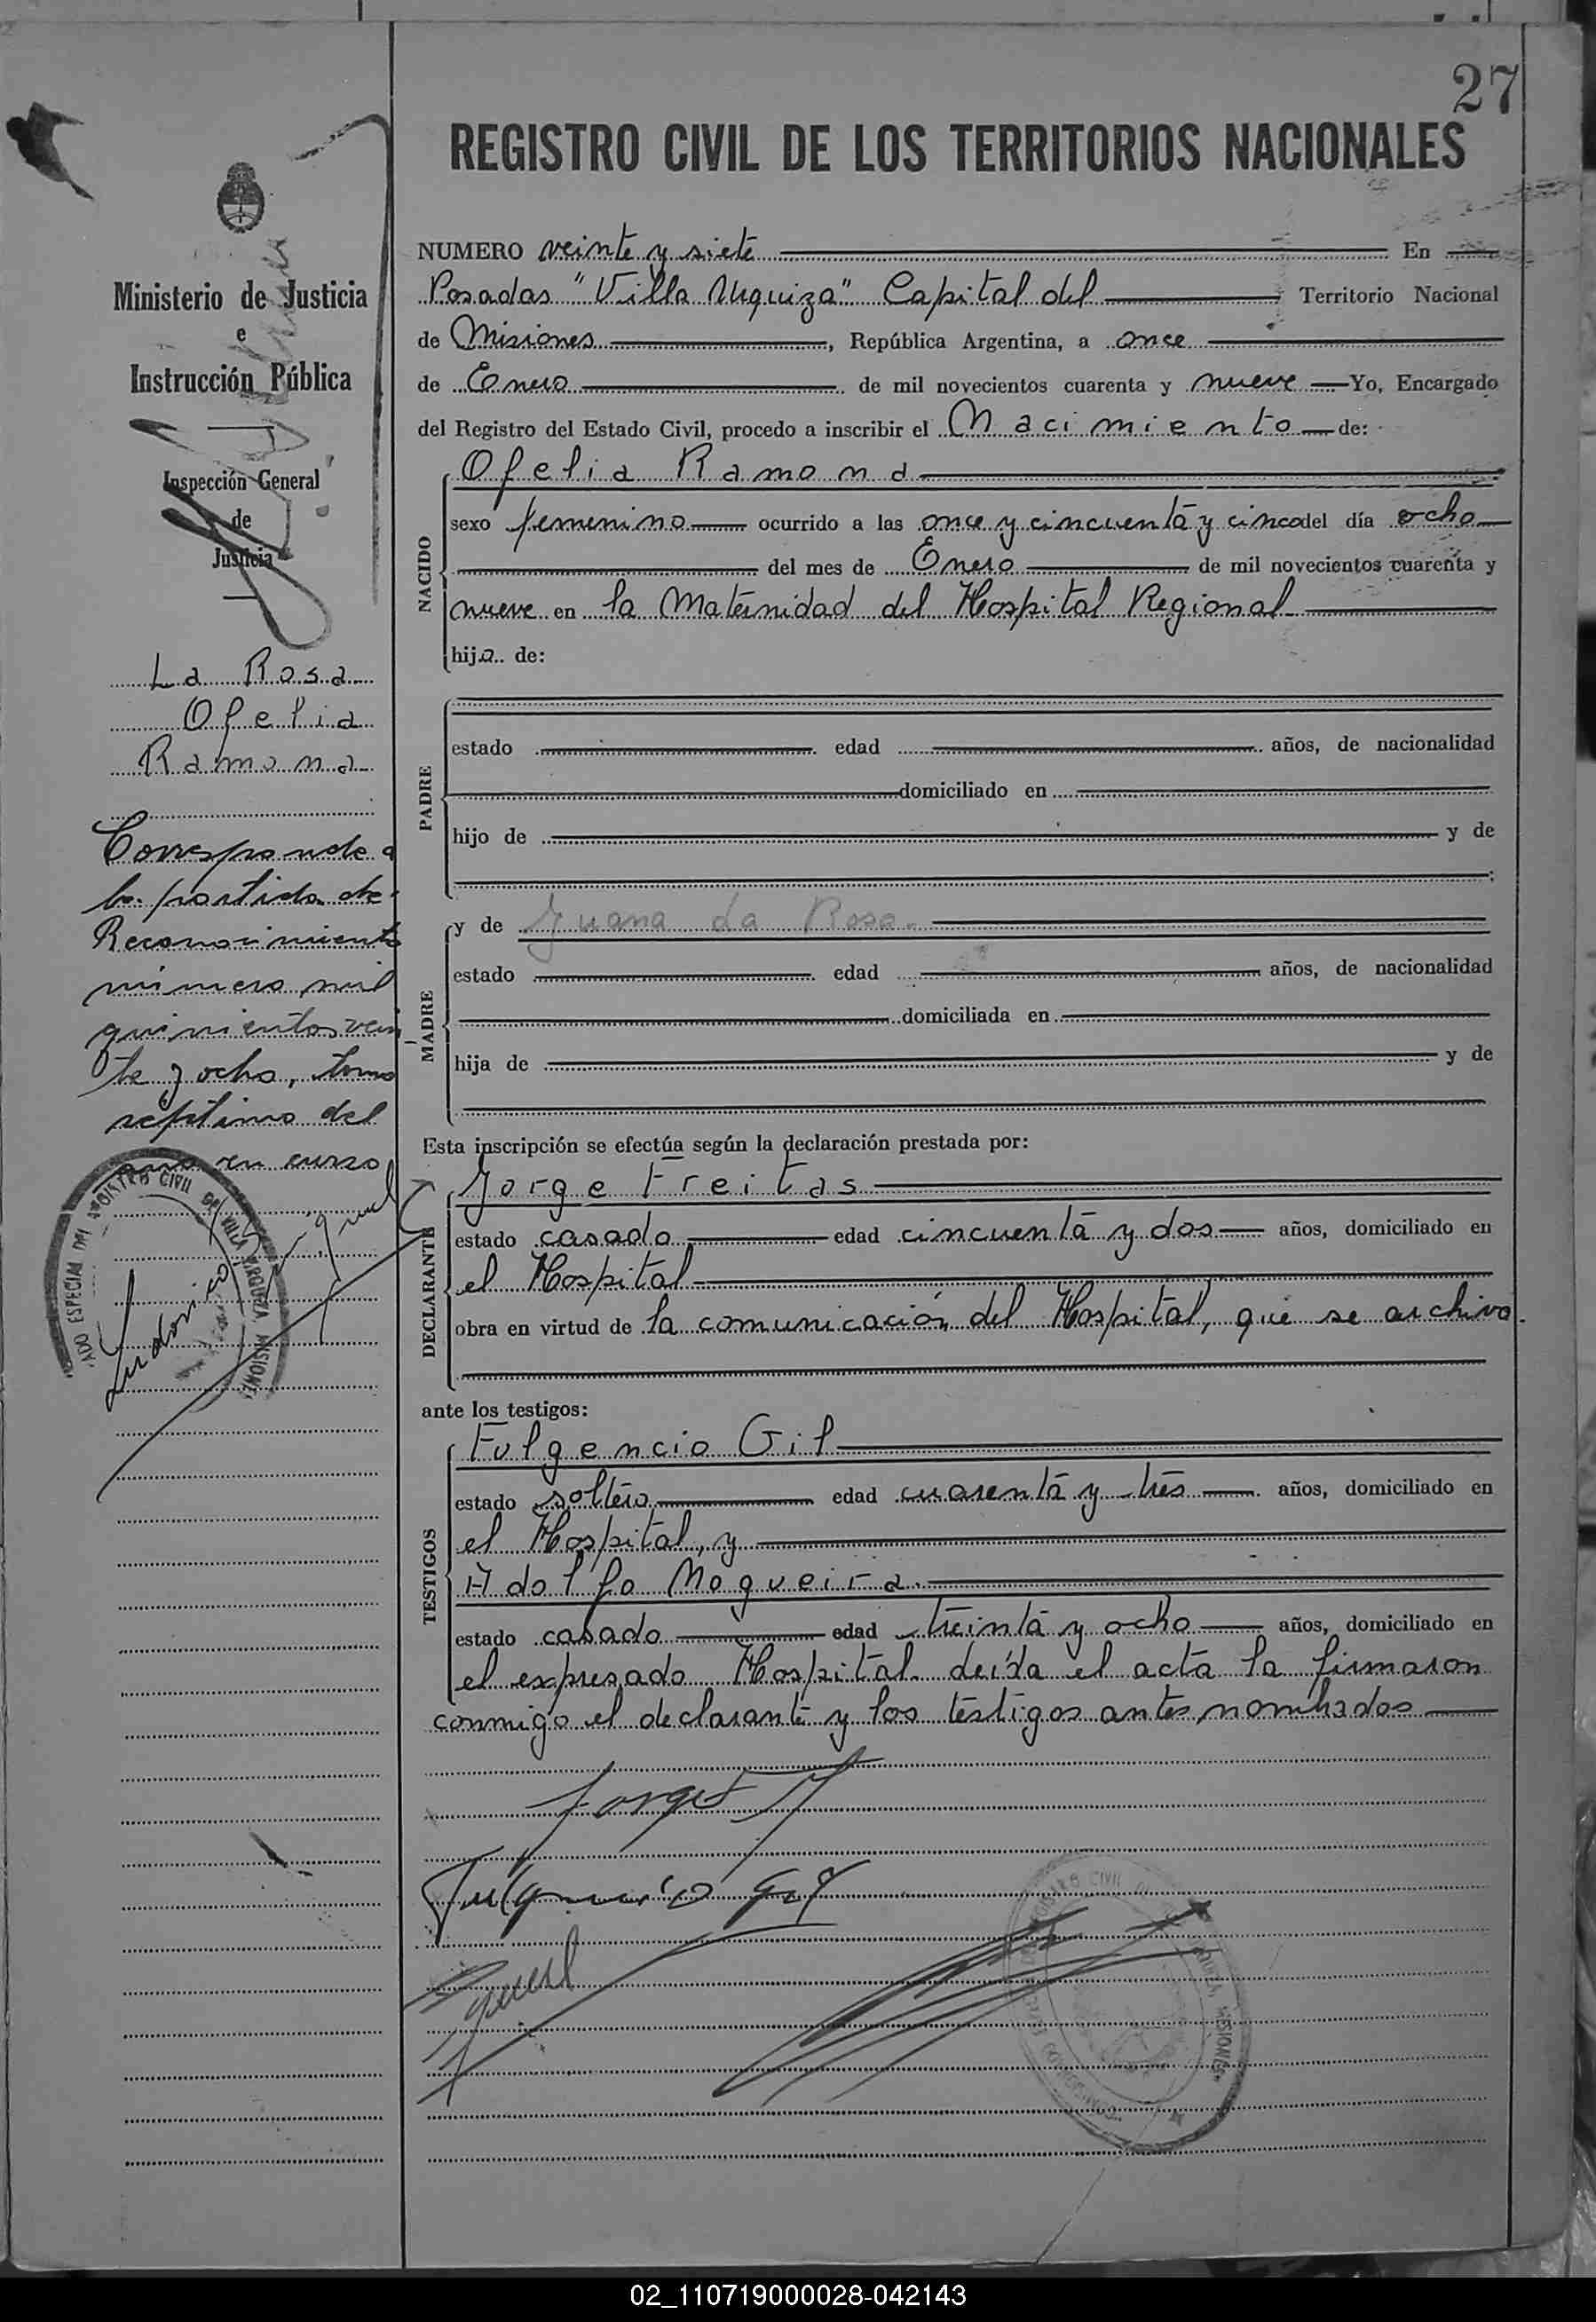 27
REGISTRO CIVIL DE LOS TERRITORIOS NACIONALES
Ministerio de Justicia
e
Instrucción Pública
Inspección General
de
Justicia
La Rosa
Ofelia
Ramona
Corresponde a
la partida de
Reconocimiento
número mil
quinientos vein
te y ocho, tomo
séptimo del
año en curso
NUMERO veinte y siete En
Posadas "Villa Urquiza" Capital del Territorio Nacional
de Misiones, República Argentina, a once
de Enero de mil novecientos cuarenta y nueve Yo, Encargado
del Registro del Estado Civil, procedo a inscribir el Nacimiento de:
NACIDO
Ofelia Ramona
sexo femenino ocurrido a las once y cincuenta y cinco del día ocho
del mes de Enero de mil novecientos cuarenta y
nueve en la Maternidad del Hospital Regional
hija de:
PADRE
estado edad años, de nacionalidad
domiciliado en
hijo de y de
;
MADRE
y de Juana La Rosa.
estado edad años, de nacionalidad
domiciliada en
hija de y de
Esta inscripción se efectúa según la declaración prestada por:
DECLARANTE
Jorge Freitas
estado casado edad cincuenta y dos años, domiciliado en
el Hospital
obra en virtud de la comunicación del Hospital, que se archiva.
ante los testigos:
TESTIGOS
Fulgencio Gil
estado soltero edad cuarenta y tres años, domiciliado en
el Hospital, y
Adolfo Nogueira.
estado casado edad treinta y ocho años, domiciliado en
el expresado Hospital. Leída el acta la firmaron
conmigo el declarante y los testigos antes nombrados
Fulgencio Gil
02_110719000028-042143